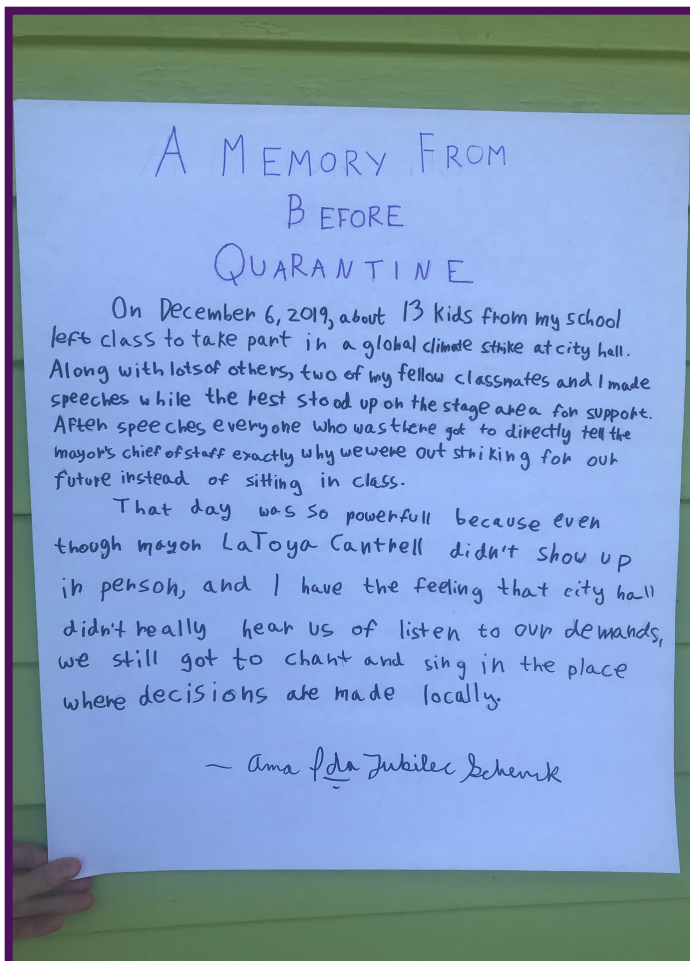 A MEMORY FROM
BEFORE
QUARANTINE
On December 6, 2019, about 13 kids from my school
left class to take part in a global climate strike at city hall.
Along with lots of others, two of my fellow classmates and I made
speeches while the rest stood up on the stage area for support.
After speeches everyone who was there got to directly tell the
mayor's chief of staff exactly why we were out striking for our
future instead of sitting in class.
That day was so powerfull because even
though mayor LaToya Cantrell didn't show up
in person, and I have the feeling that city hall
didn't really hear us of listen to our demands,
we still got to chant and sing in the place
where decisions are made locally.
— Ama Ida Jubilee Schenck